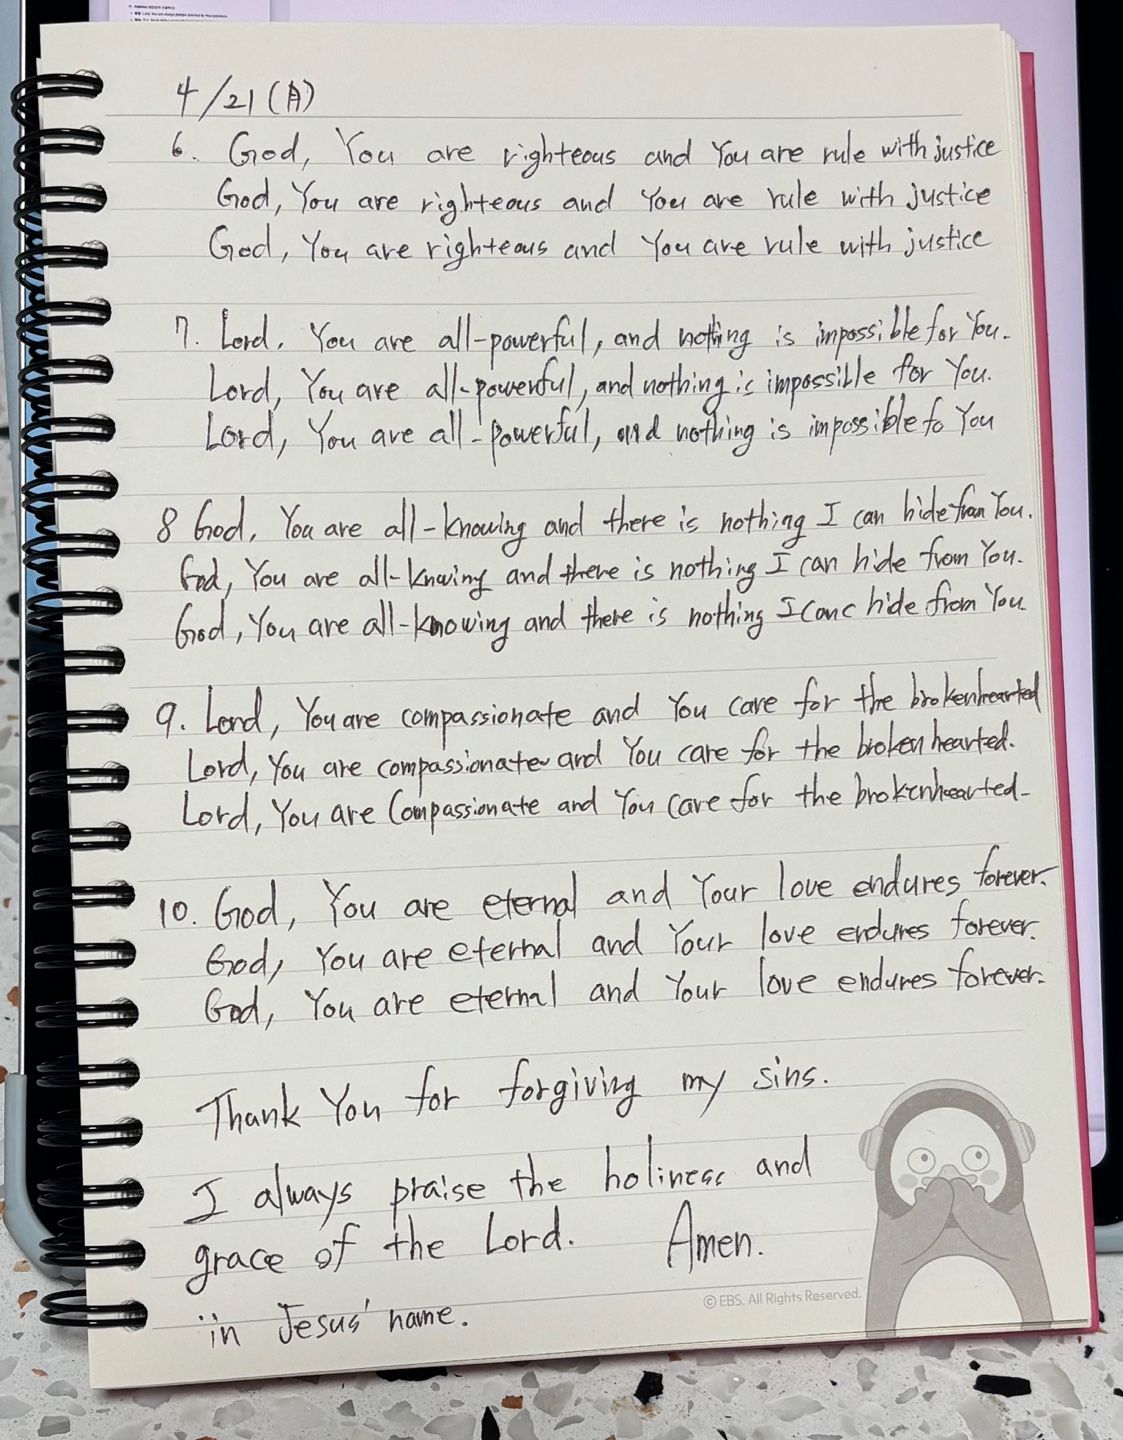 4/21 (月)
6. God, You are righteous and You are rule with justice
God, You are righteous and You are rule with justice
God, You are righteous and You are rule with justice
7. Lord, You are all-powerful, and nothing is impossible for You.
Lord, You are all-powerful, and nothing is impossible for You.
Lord, You are all-powerful, and nothing is impossible fo You
8 God, You are all-knowing and there is nothing I can hide from You.
God, You are all-knowing and there is nothing I can hide from You.
God, You are all-knowing and there is nothing I canc hide from You.
9. Lord, You are compassionate and You care for the brokenhearted
Lord, You are compassionate and You care for the broken hearted.
Lord, You are Compassionate and You care for the brokenhearted.
10. God, You are eternal and Your love endures forever.
God, You are eternal and Your love endures forever.
God, You are eternal and Your love endures forever.
Thank You for forgiving my sins.
I always praise the holiness and
grace of the Lord. Amen.
© EBS. All Rights Reserved.
in Jesus' name.